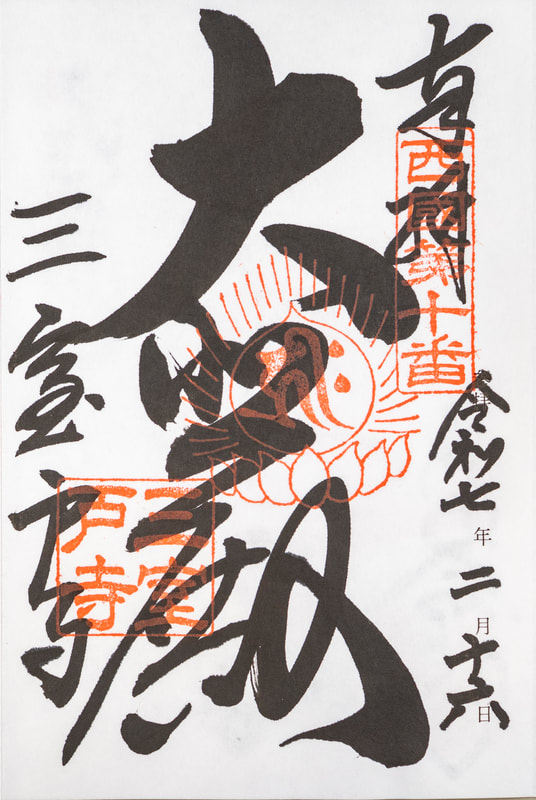 奉拝
西國第十番
令和七年二月十六日
大悲殿
三室戸寺
三室戸寺